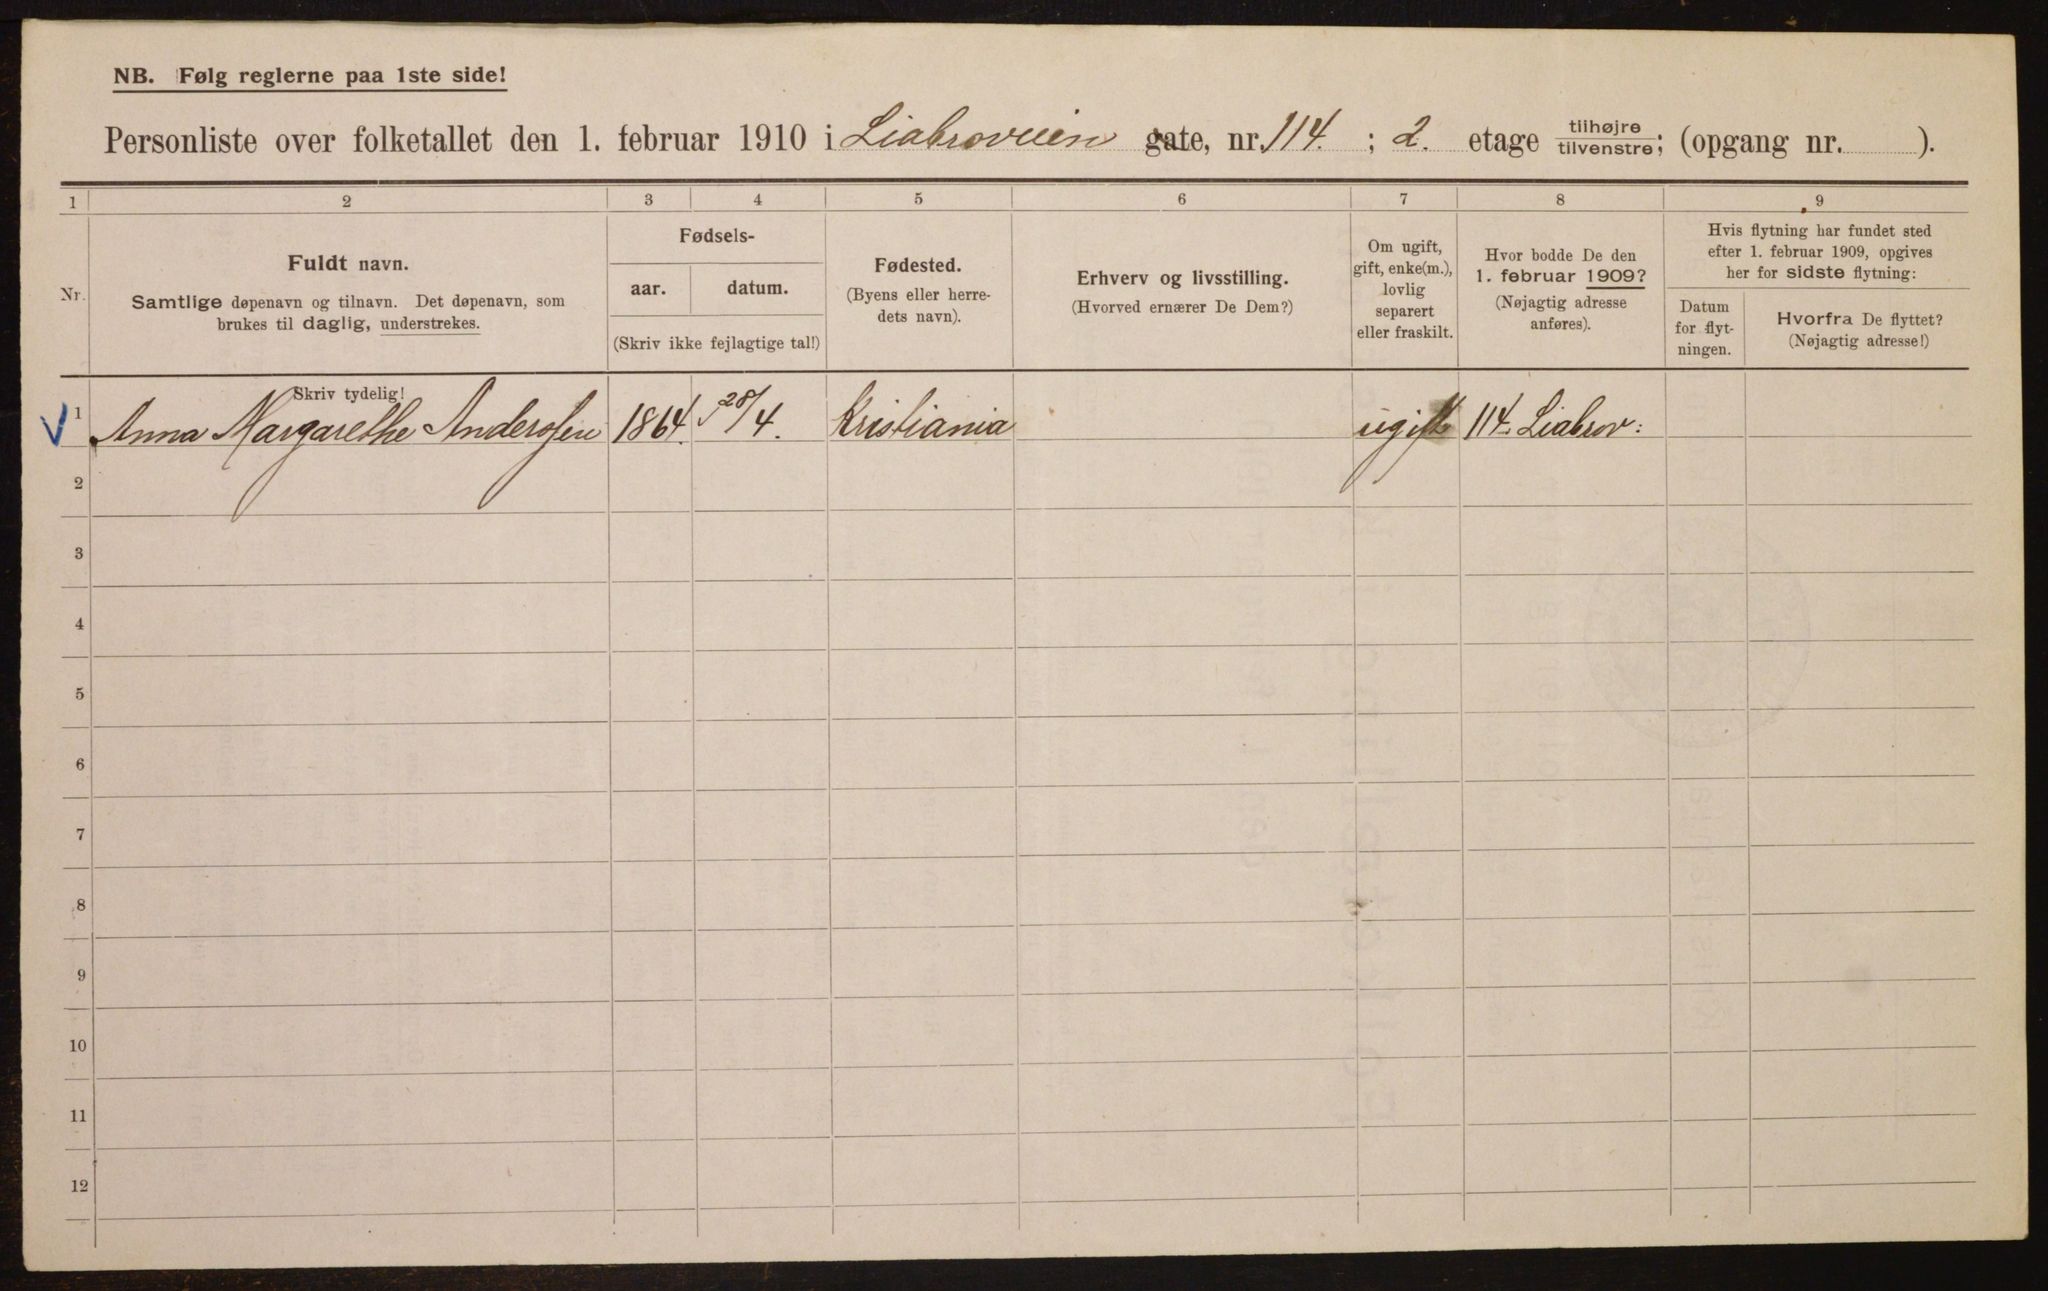 NB. Følg reglerne paa 1ste side!
Personliste over folketallet den 1. februar 1910 i Liabroveien gate, nr. 114. ; 2. etage tilhøjre tilvenstre; (opgang nr. ).
1 2 3 4 5 6 7 8 9
Nr.
Fuldt navn.
Samtlige døpenavn og tilnavn. Det døpenavn, som
brukes til daglig, understrekes.
Skriv tydelig!
Fødsels-
aar. datum.
(Skriv ikke fejlagtige tal!)
Fødested.
(Byens eller herre-
dets navn).
Erhverv og livsstilling.
(Hvorved ernærer De Dem?)
Om ugift,
gift, enke(m.),
lovlig
separert
eller fraskilt.
Hvor bodde De den
1. februar 1909?
(Nøjagtig adresse
anføres).
Hvis flytning har fundet sted
efter 1. februar 1909, opgives
her for sidste flytning:
Datum
for flyt-
ningen.
Hvorfra De flyttet?
(Nøjagtig adresse!)
1 Anna Margarethe Andersen 1864. 28/4. Kristiania ugift 114. Liabrov:
2
3
4
5
6
7
8
9
10
11
12